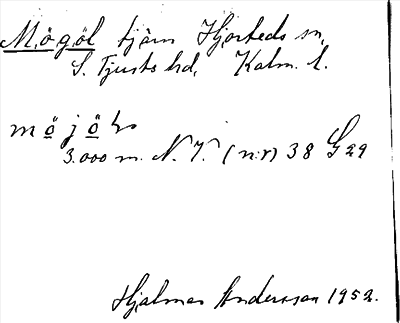 Mögöl tjärn Hjorteds sn,
S. Tjusts hd, Kalm. l.
möjöls
3.000 m. N.V. (n:r) 38 G 29
Hjalmar Andersson 1952.